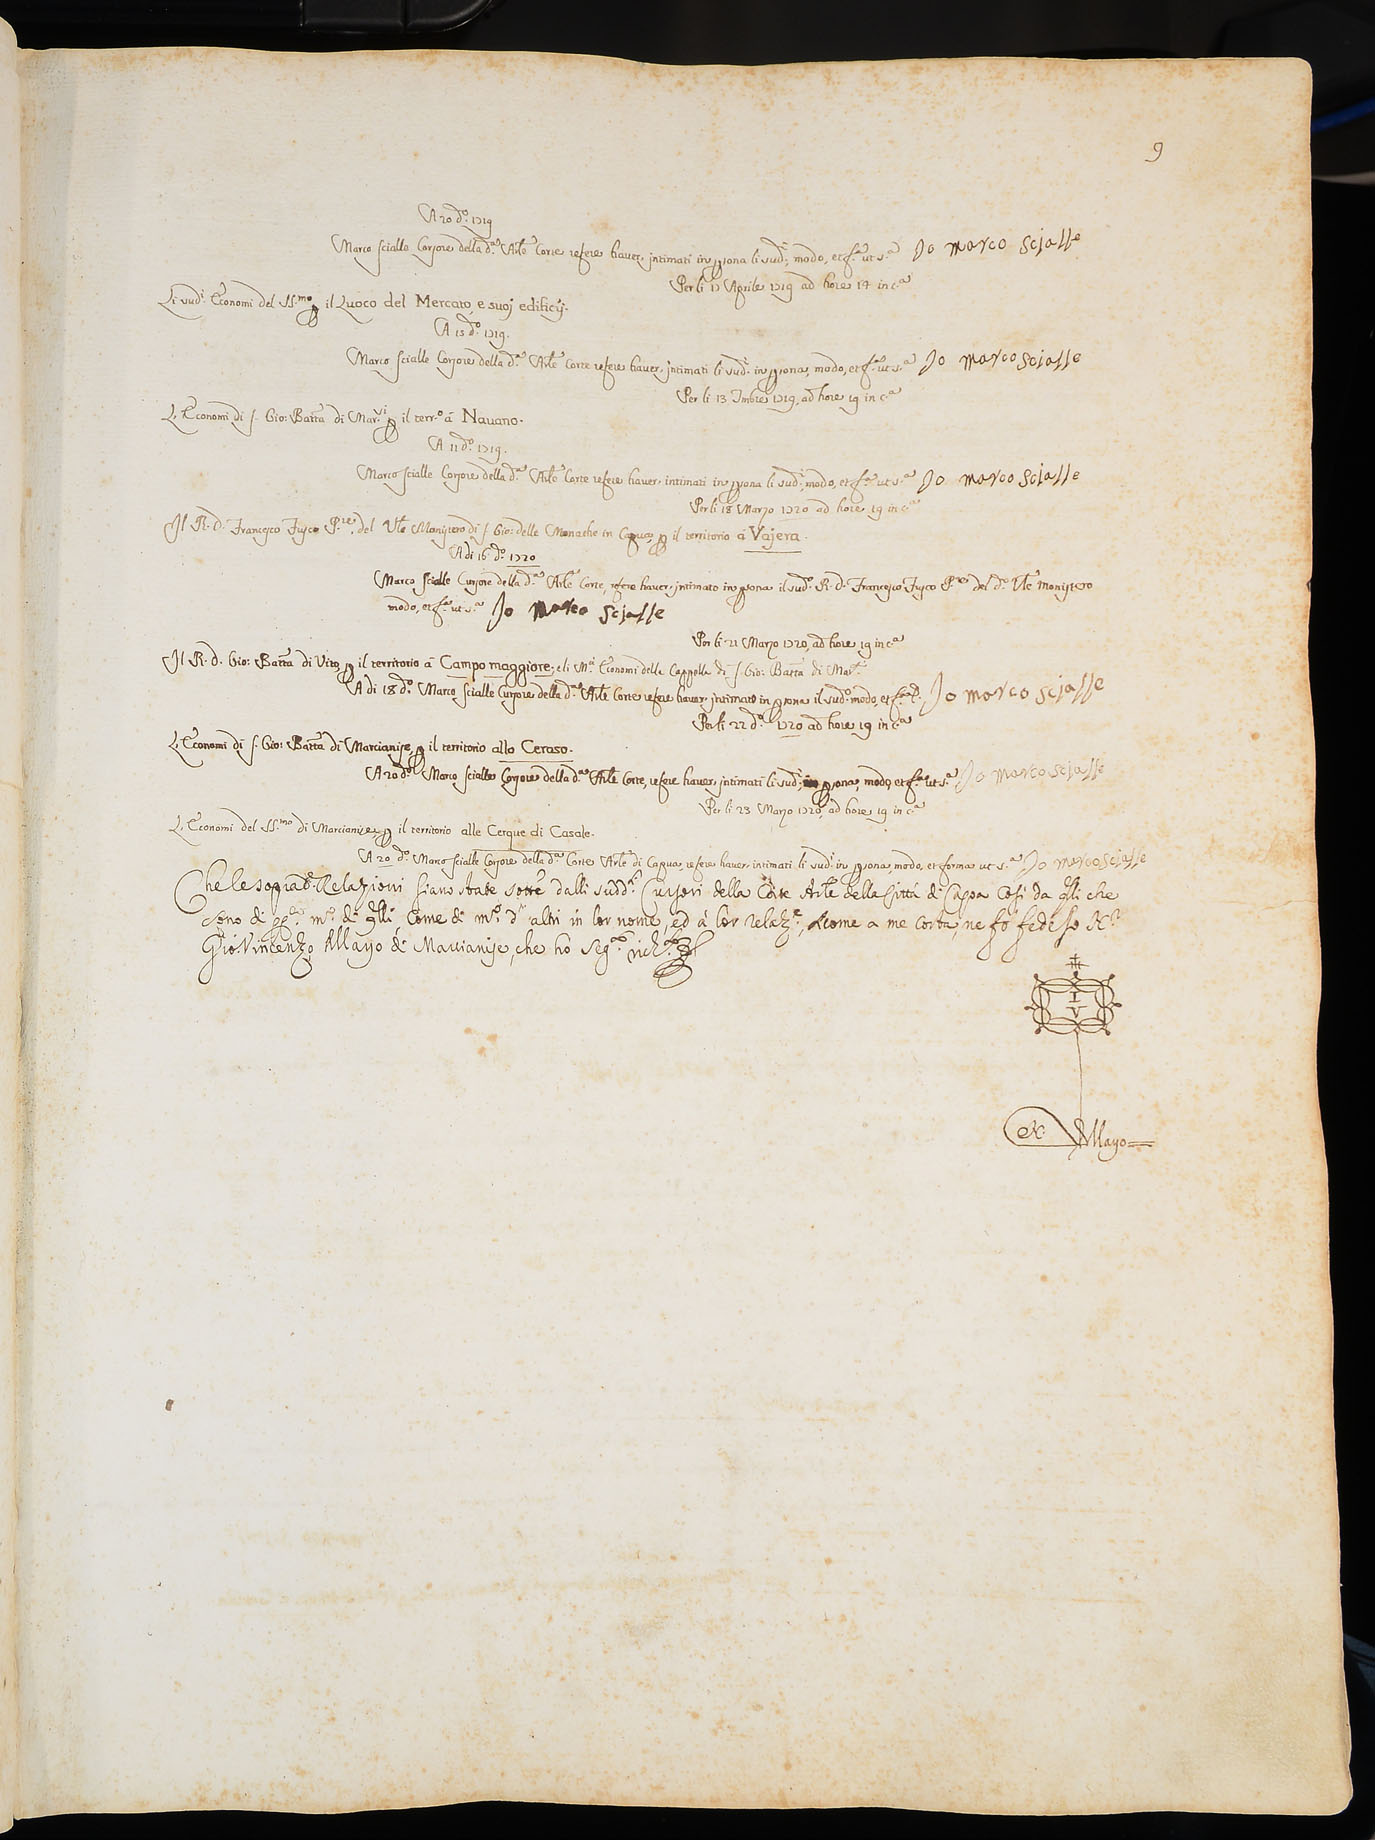 9
A 20 d.º 1719
Marco Scialle Corsore della d.ª Arle Corte refere haver intimati in persona li sud.i, modo, et f.ª ut s.ª Io Marco Scialle
Per li 17 Aprile 1719 ad hore 14 in c.ª
Li sud.i Economi del SS.mo per il Luoco del Mercato, e suoj edificij.
A 15 d.º 1719.
Marco Scialle Corsore della d.ª Arle Corte refere haver intimati li sud.i in persona, modo, et f.ª ut s.ª Io Marco Scialle
Per li 13 Imbre 1719, ad hore 19 in c.ª
L'Economi di S. Gio: Batta di Mar.vi per il terr.º á Nauano.
A 11 d.º 1719.
Marco Scialle Corsore della d.ª Arle Corte refere haver intimati in persona li sud.i, modo, et f.ª ut s.ª Io Marco Scialle
Per li 18 Marzo 1720 ad hore 19 in c.ª
Il R. D. Francesco Fusco P.re, del Vle Monistero di S. Gio: delle Monache in Capua, per il territorio á Vajera.
A di 16 d.º 1720
Marco Scialle Cursore della d.ª Arle Corte, refere haver intimato in persona il sud.º R. D. Francesco Fusco P.re del d.º Vle Monistero
modo, et f.ª ut s.ª Io Marco Scialle
Per li 21 Marzo 1720, ad hore 19 in c.ª
Il R. D. Gio: Batta di Vito, per il territorio á Campo maggiore; e li M.ci Economi della Cappella di S. Gio: Batta di Mar.
A di 18 d.º Marco Scialle Cursore della d.ª Arle Corte refere haver intimato in persona il sud.º modo, et f.ª Io Marco Scialle
Per li 22 d.º 1720 ad hore 19 in c.ª
L'Economi di S. Gio: Batta di Marcianise, per il territorio allo Ceraso.
A 20 d.º Marco Scialle Corsore della d.ª Arle Corte, refere haver intimati li sud.i in persona, modo, et f.ª ut s.ª Io Marco Scialle
Per li 23 Marzo 1720, ad hore 19 in c.ª
L'Economi del SS.mo di Marcianise, per il territorio alle Cerque di Casale.
A 20 d.º Marco Scialle Corsore della d.ª Corte Arle di Capua, refere haver intimati li sud.i in persona, modo, et forma ut s.ª Io Marco Scialle
Che le sopra d.e Relazioni siano state sotte dalli sudd.i Cursori della Corte Arle della Città di Capua Così da qlli che
sono di pp.ª m.º di qlli Come di m.º d' altri in lor nome, ed á lor relaz.e, come a me costa, ne fo fede io N.r
Gio: Vincenzo Mayo di Marcianise, che hó seg.to rich.to
I
V
N. Mayo